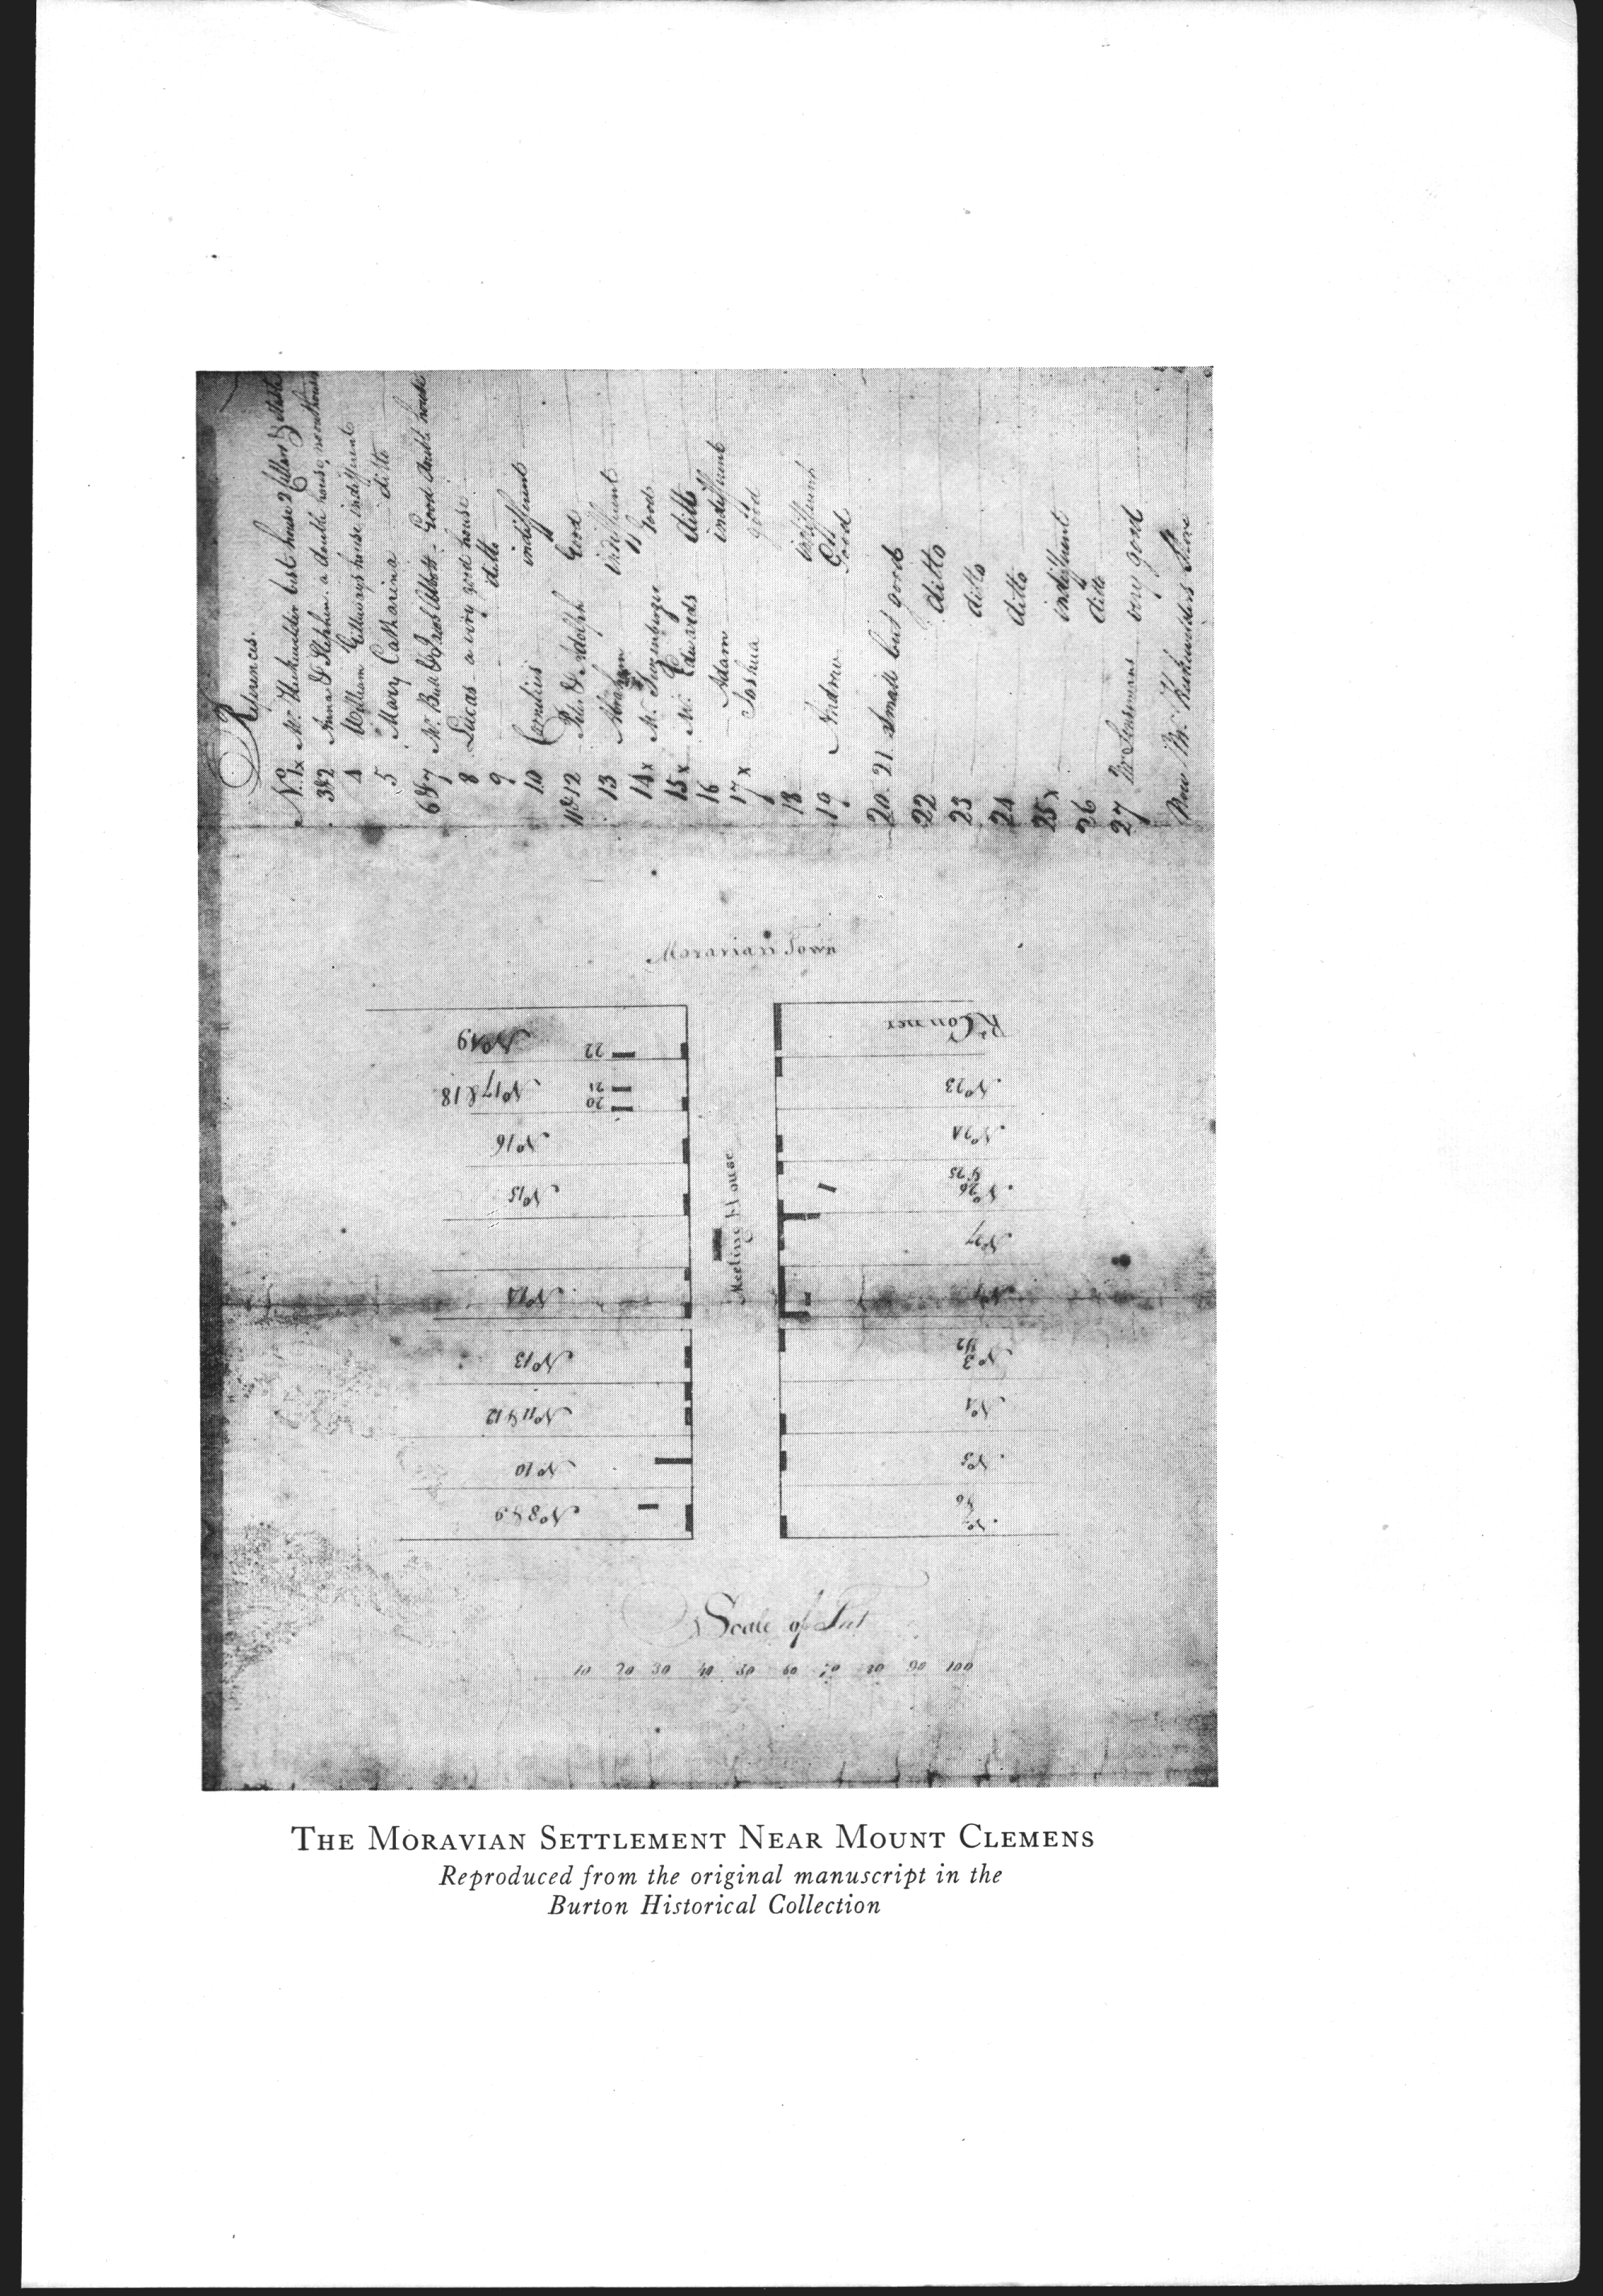 References.
No. 1x Mr. best house 2 & stable
3&2 & Stephen. a double house,
4 William house indifferent
5 Mary Catharina ditto
6&7 Mr. Bull & Good double house
8 Lucas a very good house
9 ditto
10 Cornelius indifferent
11&12 & Adolph Good
13 Abraham indifferent
14x Mr. Good
15x Mr. Edwards ditto
16 Adam indifferent
17x Joshua good
18 indifferent
19 Andrew Good
20. 21 Small but good
22 ditto
23 ditto
24 ditto
25x indifferent
26 ditto
27 Mr. Sensemans very good
Moravian Town
No 19
22
No 17 & 18
21
20
No 16
No 15
No 14
No 13
No 11 & 12
No 10
No 8 & 9
Meeting House
Rd Conner
No 23
No 24
No 26 & 25
No 27
No 1
No 3 & 2
No 4
No 5
No 7 & 6
Scale of Feet
10 20 30 40 50 60 70 80 90 100
THE MORAVIAN SETTLEMENT NEAR MOUNT CLEMENS
Reproduced from the original manuscript in the
Burton Historical Collection